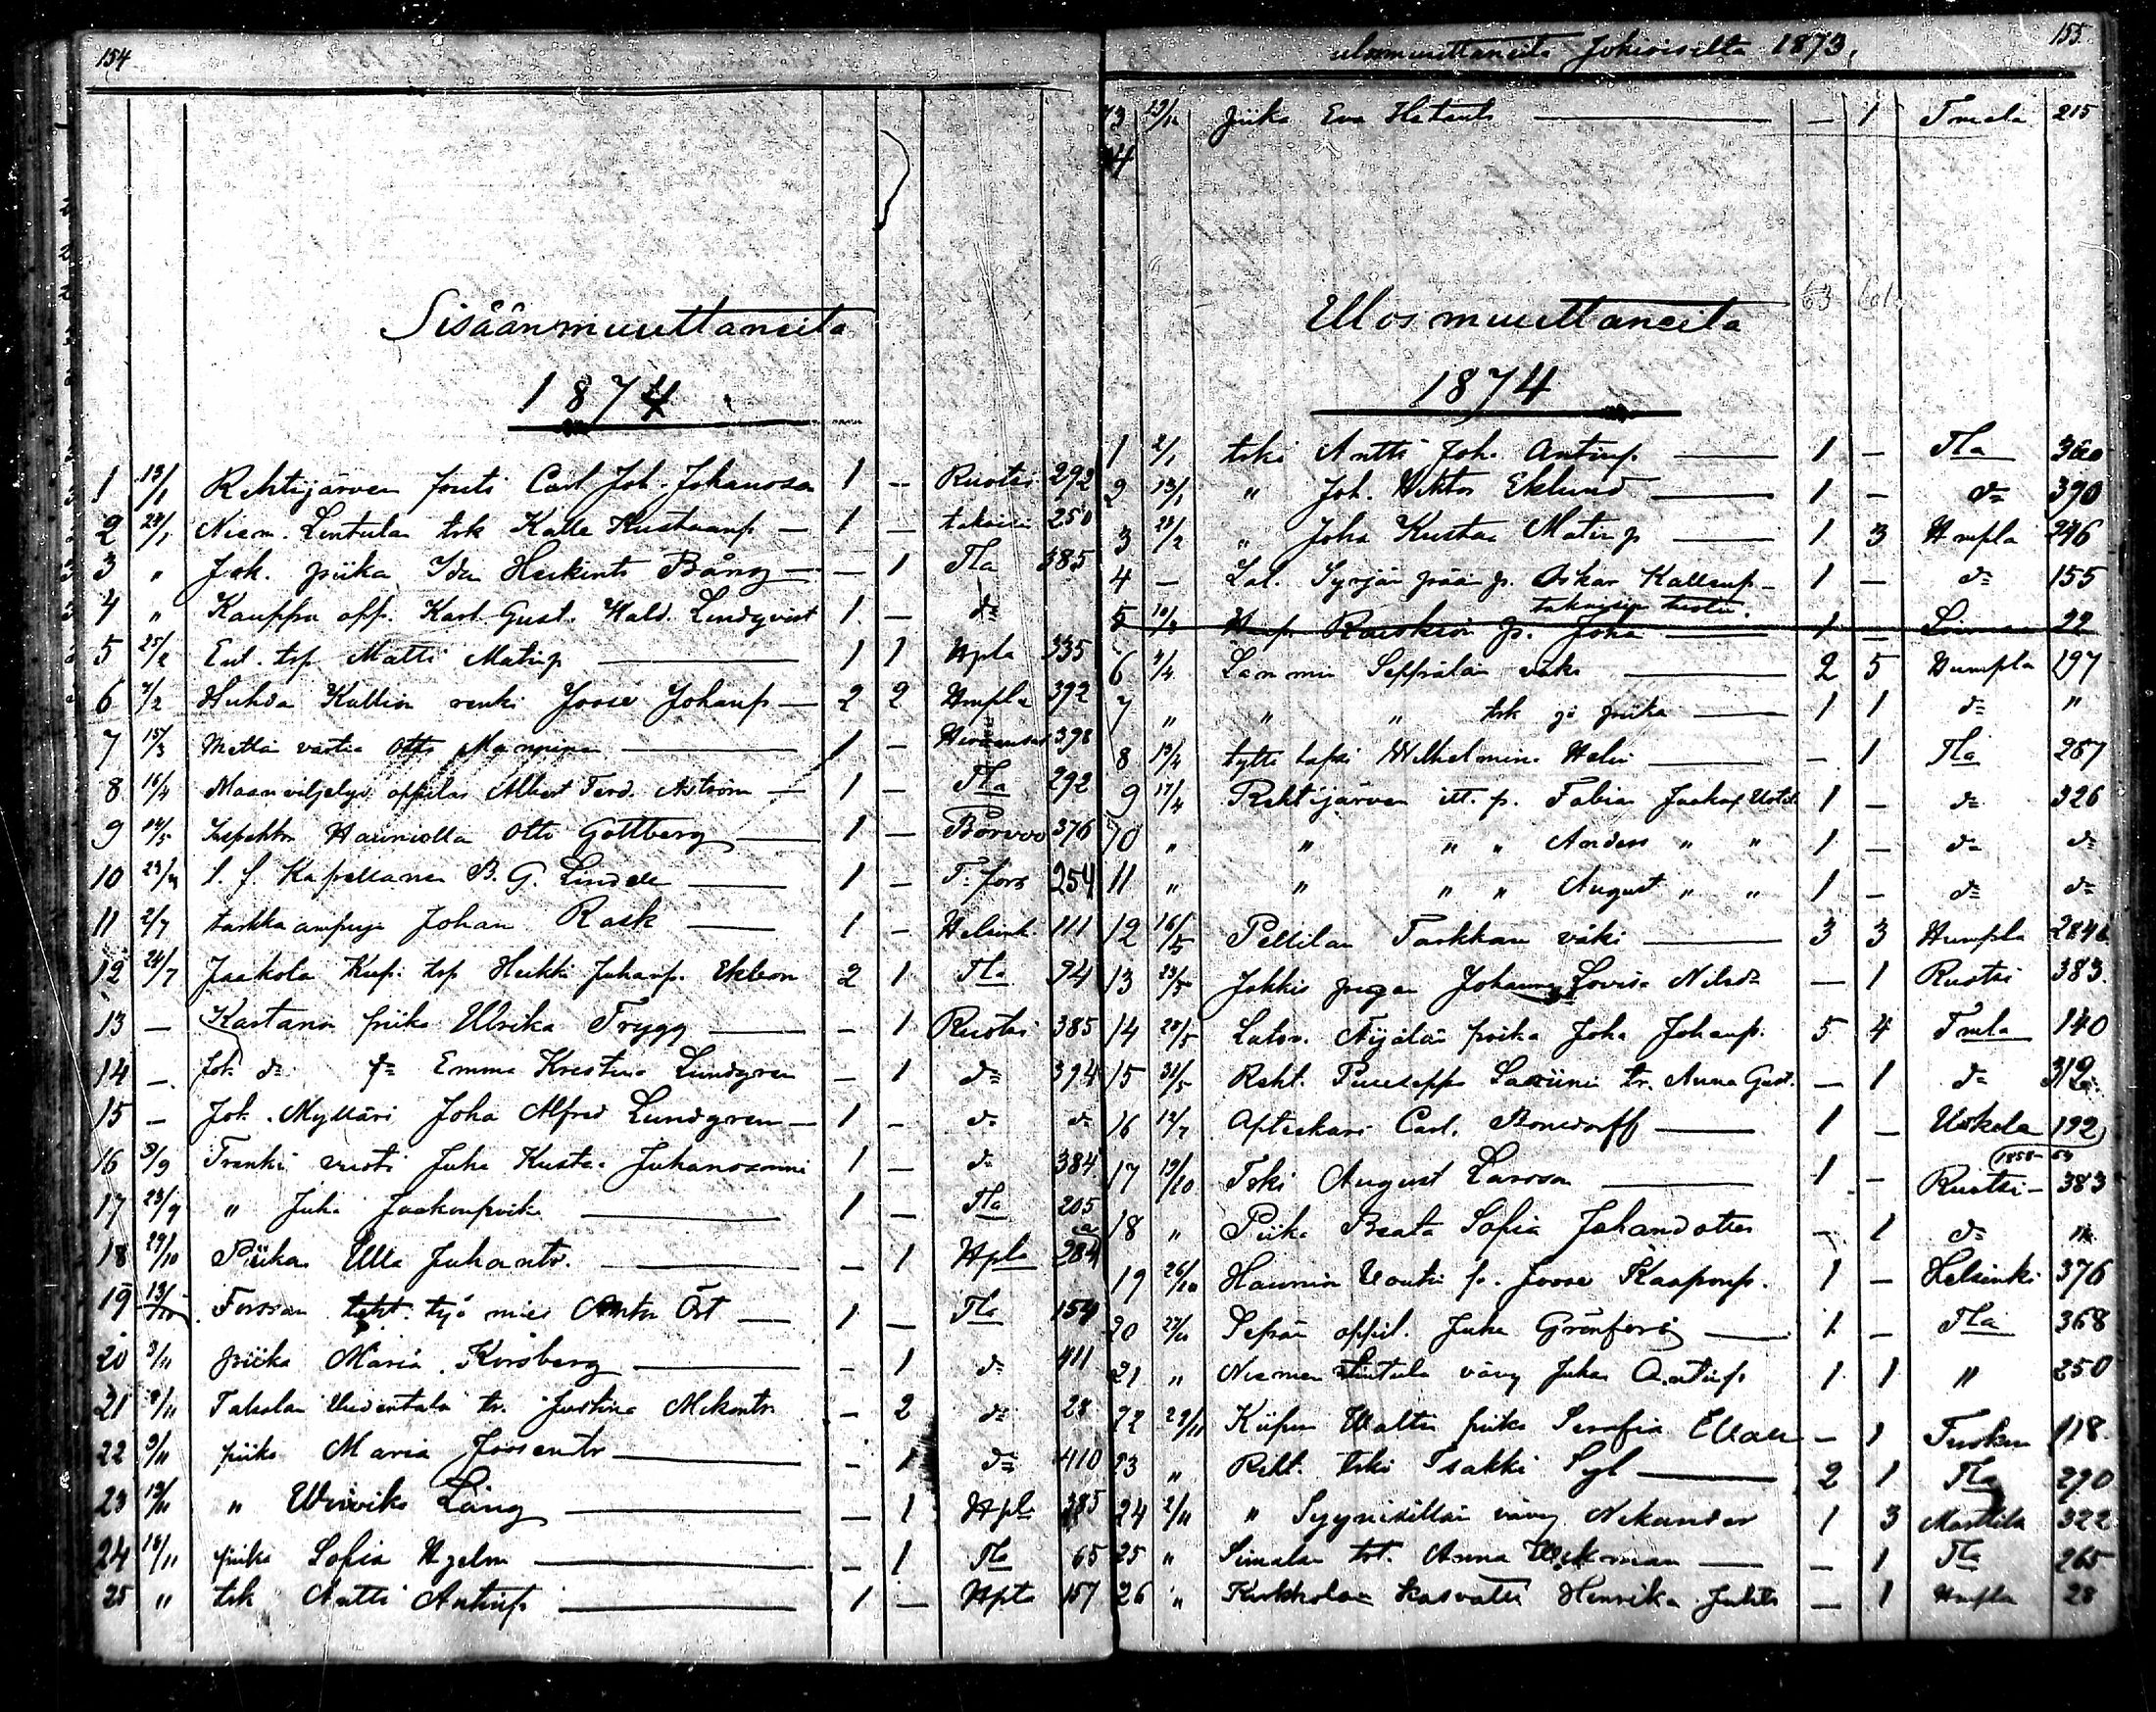 154
Sisäänmuuttaneita
1874
1 13/1 Rehtijärven fouti Carl Joh. Johansson 1 — Ruotsi 292
2 23/1 Niem. Lintulan trk Kalle Kustaanp — 1 — takaisin 250
3 " Jok. piika Ida Heikints Bång — — 1 Tla 385
4 " Kauppa opp. Karl Gust. Wald. Lindqvist 1 — d=
5 25/2 Erl. trp Matti Matinp — 1 1 Hpla 335
6 4/2 Huhda Kallion renki Joose Johanp — 2 2 Hmpla 392
7 15/3 Mettä vartia Otto Manninen — 1 — 398
8 16/4 Maanviljelys oppilas Albert Ferd. Aström — 1 — Tla 292
9 14/5 Inspehtor Hauniolla Otto Gottberg — 1 — Borvoo 376
10 23/ s. f. Kapellanen B. G. Lindell — 1 — T:fors 254
11 2/7 tarkka ampuja Johan Rask — 1 — Helsink. 111
12 24/7 Jaakola Kup. trp Heikki Juhanp. Ekbom 2 1 Tla 94
13 — Kartanon piika Ulrika Trygg — — 1 Ruotsi 385
14 — Jok d= d= Emma Kristina Lundgren — 1 d= 394
15 — Jok. Mylläri Joha Alfred Lundgren — 1 — d= d=
16 9/9 Trenki vuoti Juha Kustaa Juhanssonni 1 — d= 384
17 23/9 " Juha Jaakonpoika — 1 — Tla 205
18 29/10 Piika Ulla Juhantr. — — 1 Hpla 284
19 13/10 Forssan teht. työ mies Anton Öst — 1 — Tla 154
20 3/11 piika Maria Korsberg — — 1 d= 411
21 9/11 Talsolan Uudentalo tr. Justina Mikontr. — 2 d= 28
22 9/11 piika Maria Joosentr — — 1 d= 410
23 13/11 " Ulviika Lång — — 1 Hpla 385
24 18/11 piika Sofia Hjelm — — 1 Tla 65
25 " trk Antti Antinp — 1 — Hpla 157
ulosmuuttaneita Jokioiselta 1873. 155
73 19/12 piika Eva Hetants — — 1 Tmela 215
74
Ulosmuuttaneita 63
1874
1 2/1 trki Antti Joh. Antinp. — 1 — Tla 360
2 13/1 " Joh. Viktor Eklund — 1 — d= 390
3 23/2 " Joha Kustaa Matinp — 1 3 Hmpla 296
4 — Lat. Syrjän pään p. Oskar Kallenp — 1 — d= 155
takaisin tästä.
5 10/3 p. Joha — 1 — 22
6 4/4 Lammin Seppälän väki — 2 5 Humpla 197
7 " " " trk ja piika — 1 1 d= "
8 13/4 tyttö lapsi Wilhelmina Helin — — 1 Tla 287
9 17/4 Rehtijärven itt. p. Fabian Jaakop Uotil 1 — d= 326
10 " " " " Anders " " 1 — d= d=
11 " " " " August " " 1 — d= d=
12 16/5 Pellilan Tarkkan väki — 3 3 Humpla 284
13 23/5 Jokkis pigan Johanna Lovisa Nilsd= — 1 Ruotsi 383.
14 28/5 Latov. Äijälän poika Joha Johanp. 5 4 Tmla 140
15 31/5 Reht. Puuseppä tr. Anna Gust. — 1 d= 312
16 13/7 Aptiekari Carl. Bonsdorff — 1 — Uskela 192
1858-63
17 19/10 Trki August Larsson — 1 — Ruotsi — 383
18 " Piika Beata Sofia Johansdotter — 1 d= "
19 26/10 Haunion Vouti p. Joose Kaaponp. 1 — Helsinki 376
20 27/10 Sepän oppil. Juha Grönfors — 1 — Tla 368
21 " Niemen Lintula vävy Juha Antinp. 1 1 " 250
22 29/10 Kiipun Waltin piika Serafia Ellan — 1 Tursku 118.
23 " Reht. trki Isakki Syl — 2 1 Tla 290
24 2/11 " Syynisillän vävy Nikander 1 3 Marttila 322
25 " Simalan trt. Anna Wickman — — 1 Tla 265
26 " Kirkkolan kasvatti Henrika Juhts — 1 Hmpla 28